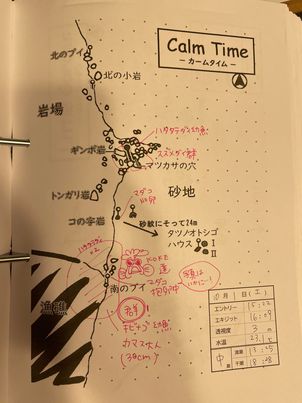 Calm Time
― カームタイム ―
北のブイ
北の小岩
岩場
ハタタテダイ幼魚
スズメダイ群
ギンポ岩
マツカサの穴
トンガリ岩
マダコ
砂地
コの字岩
砂紋にそって24m
タツノオトシゴ
ハウス
I
II
南のブイ
マダコ
抱卵中
漁礁
群
キビナゴ幼魚
カマス大人
(30cm)
10月 1日(土)
エントリー 15:22
エキジット 16:09
透視度 3 m
水温 23.1℃
中 満潮
干潮